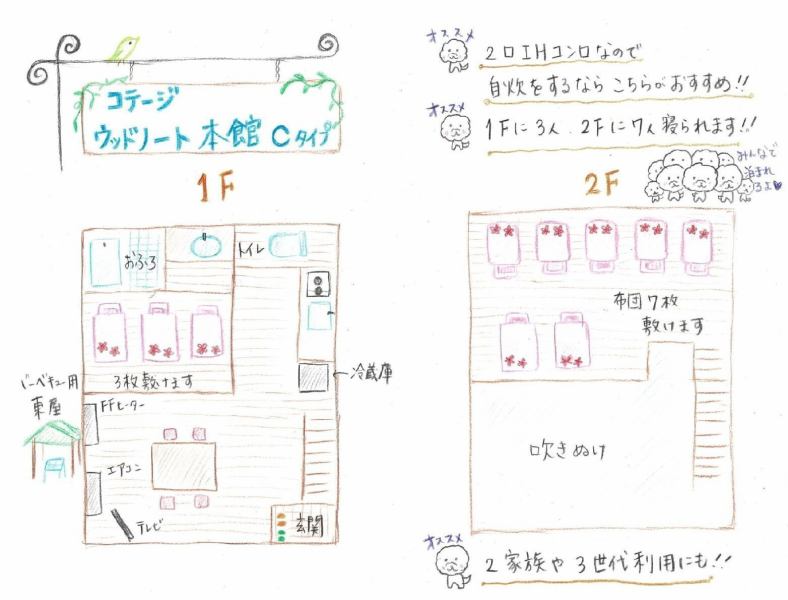 コテージ
ウッドノート 本館 Cタイプ
オススメ
2口IHコンロなので
自炊をするなら こちらがおすすめ!!
オススメ
1Fに3人、2Fに7人寝られます!!
みんなで
泊まれ
るよ
1F
おふろ
トイレ
3枚敷けます
冷蔵庫
バーベキュー用
東屋
FFヒーター
エアコン
テレビ
玄関
2F
布団7枚
敷けます
吹きぬけ
オススメ
2家族や3世代利用にも!!